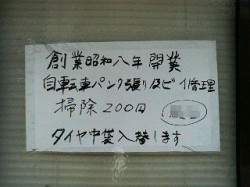 創業昭和八年開業
自転車パンク張り及ビ修理
掃除200円
タイヤ中袋入替します